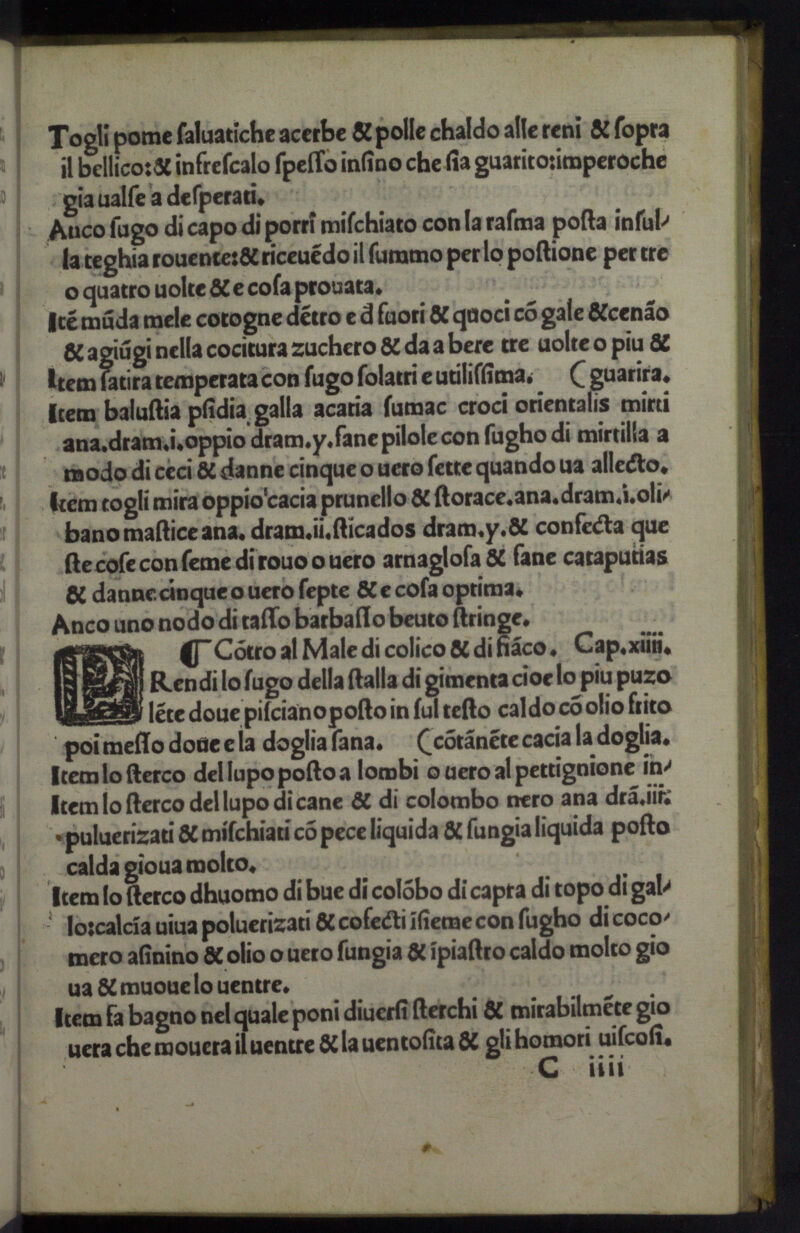 Togli pome saluatiche acerbe & polle chaldo alle reni & sopra
il bellico: & infrescalo spesso insino che sia guarito: imperoche
gia ualse a desperati.
Anco sugo di capo di porri mischiato con la rasma posta in sul/
la teghia rouente: & riceuēdo il fummo per lo postione per tre
o quatro uolte & e cosa prouata.
Itē mūda mele cotogne dētro e d fuori & quoci cō gale & cenāo
& agiūgi nella cocitura zuchero & da a bere tre uolte o piu &
Item satira temperata con sugo solatri e utilissima. ( guarira.
Item balustia psidia galla acatia sumac croci orientalis mirti
ana.dram.i.oppio dram.y.fane pilole con sugho di mirtilla a
modo di ceci & danne cinque o uero sette quando ua allecto.
Item togli mira oppio cacia prunello & storace.ana.dram.i.oli/
bano mastice ana. dram.ii.sticados dram.y.& confecta que
ste cose con seme di rouo o uero arnaglosa & fane cataputias
& danne cinque o uero septe & e cosa optima.
Anco uno nodo di tasso barbasso beuto stringe.
¶ Cōtro al Male di colico & di fiāco. Cap.xiiii.
PRendi lo sugo della stalla di gimenta cioe lo piu puzo
lēte doue pisciano posto in sul testo caldo cō olio frito
poi messo doue e la doglia sana. ( cōtānēte cacia la doglia.
Item lo sterco del lupo posto a lombi o uero al pettignione in/
Item lo sterco del lupo di cane & di colombo nero ana drā.iii:
puluerizati & mischiati cō pece liquida & sungia liquida posto
calda gioua molto.
Item lo sterco dhuomo di bue di colōbo di capra di topo di gal/
lo: calcīa uiua poluerizati & cōfecti īsieme con sugho di coco/
mero asinino & olio o uero sungia & īpiastro caldo molto gio
ua & muoue lo uentre.
Item fa bagno nel quale poni diuersi sterchi & mirabilmēte gio
uera che mouera il uentre & la uentosita & gli homori uiscosi.
C iiii